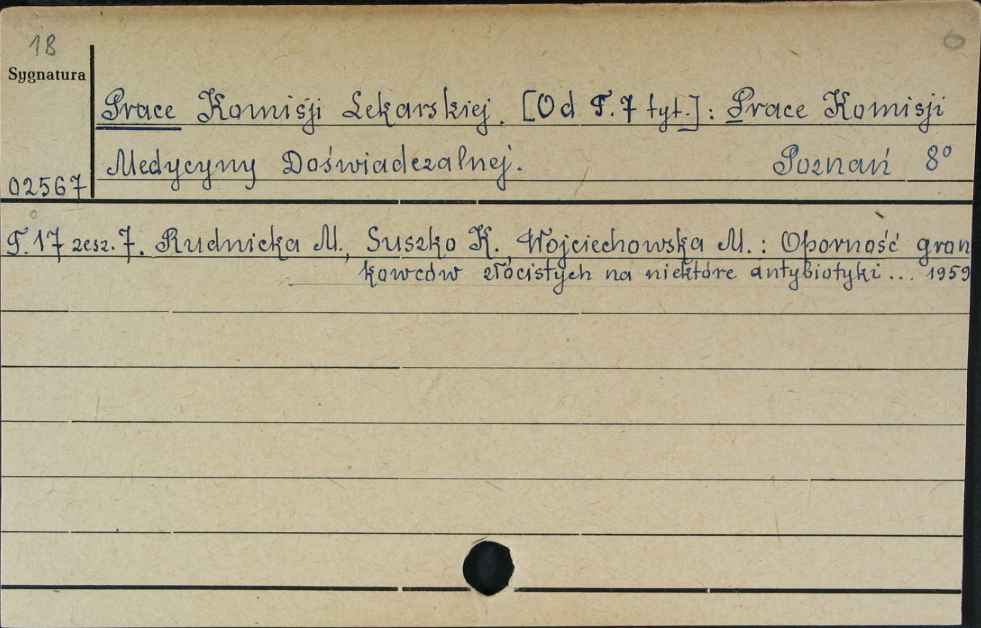 18
6
Sygnatura
Prace Komisji Lekarskiej. [Od T. 7 tyt.]: Prace Komisji
Medycyny Doświadczalnej. Poznań 8°
02567
T. 17 zesz. 7. Rudnicka M., Suszko K., Wojciechowska M.: Oporność gron
kowców złocistych na niektóre antybiotyki ... 1959